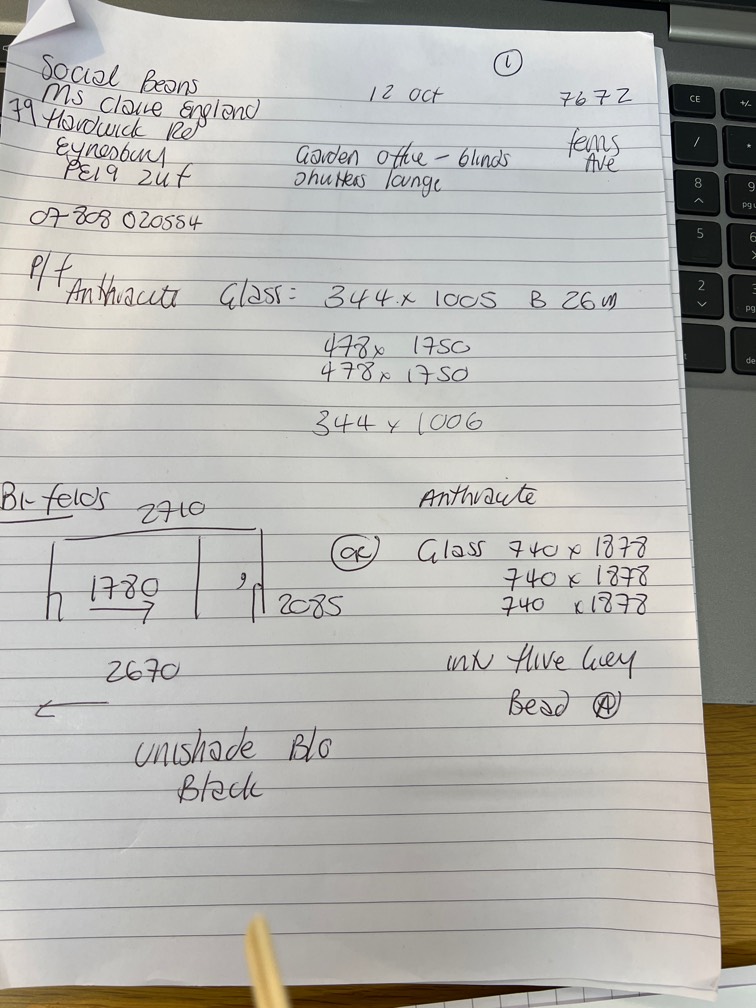 1
Social Beans
12 Oct
7672
Ms Claire England
79 Hardwick Rd
Eynesbury
Garden office - blinds
ferns
Ave
PE19 2uf
shutters lounge
07808 020554
P/f Anthracite Glass: 344 x 1005 B 26m
478x 1750
478x 1750
344 x 1006
Bi-folds
2710
Anthracite
OK
Glass 740 x 1878
1780
740 x 1878
2085
740 x1878
2670
Hive Grey
Bead A
unishade Blo
Black
CE
+/-
/
*
8
9
pg
5
6
2
3
pg
de